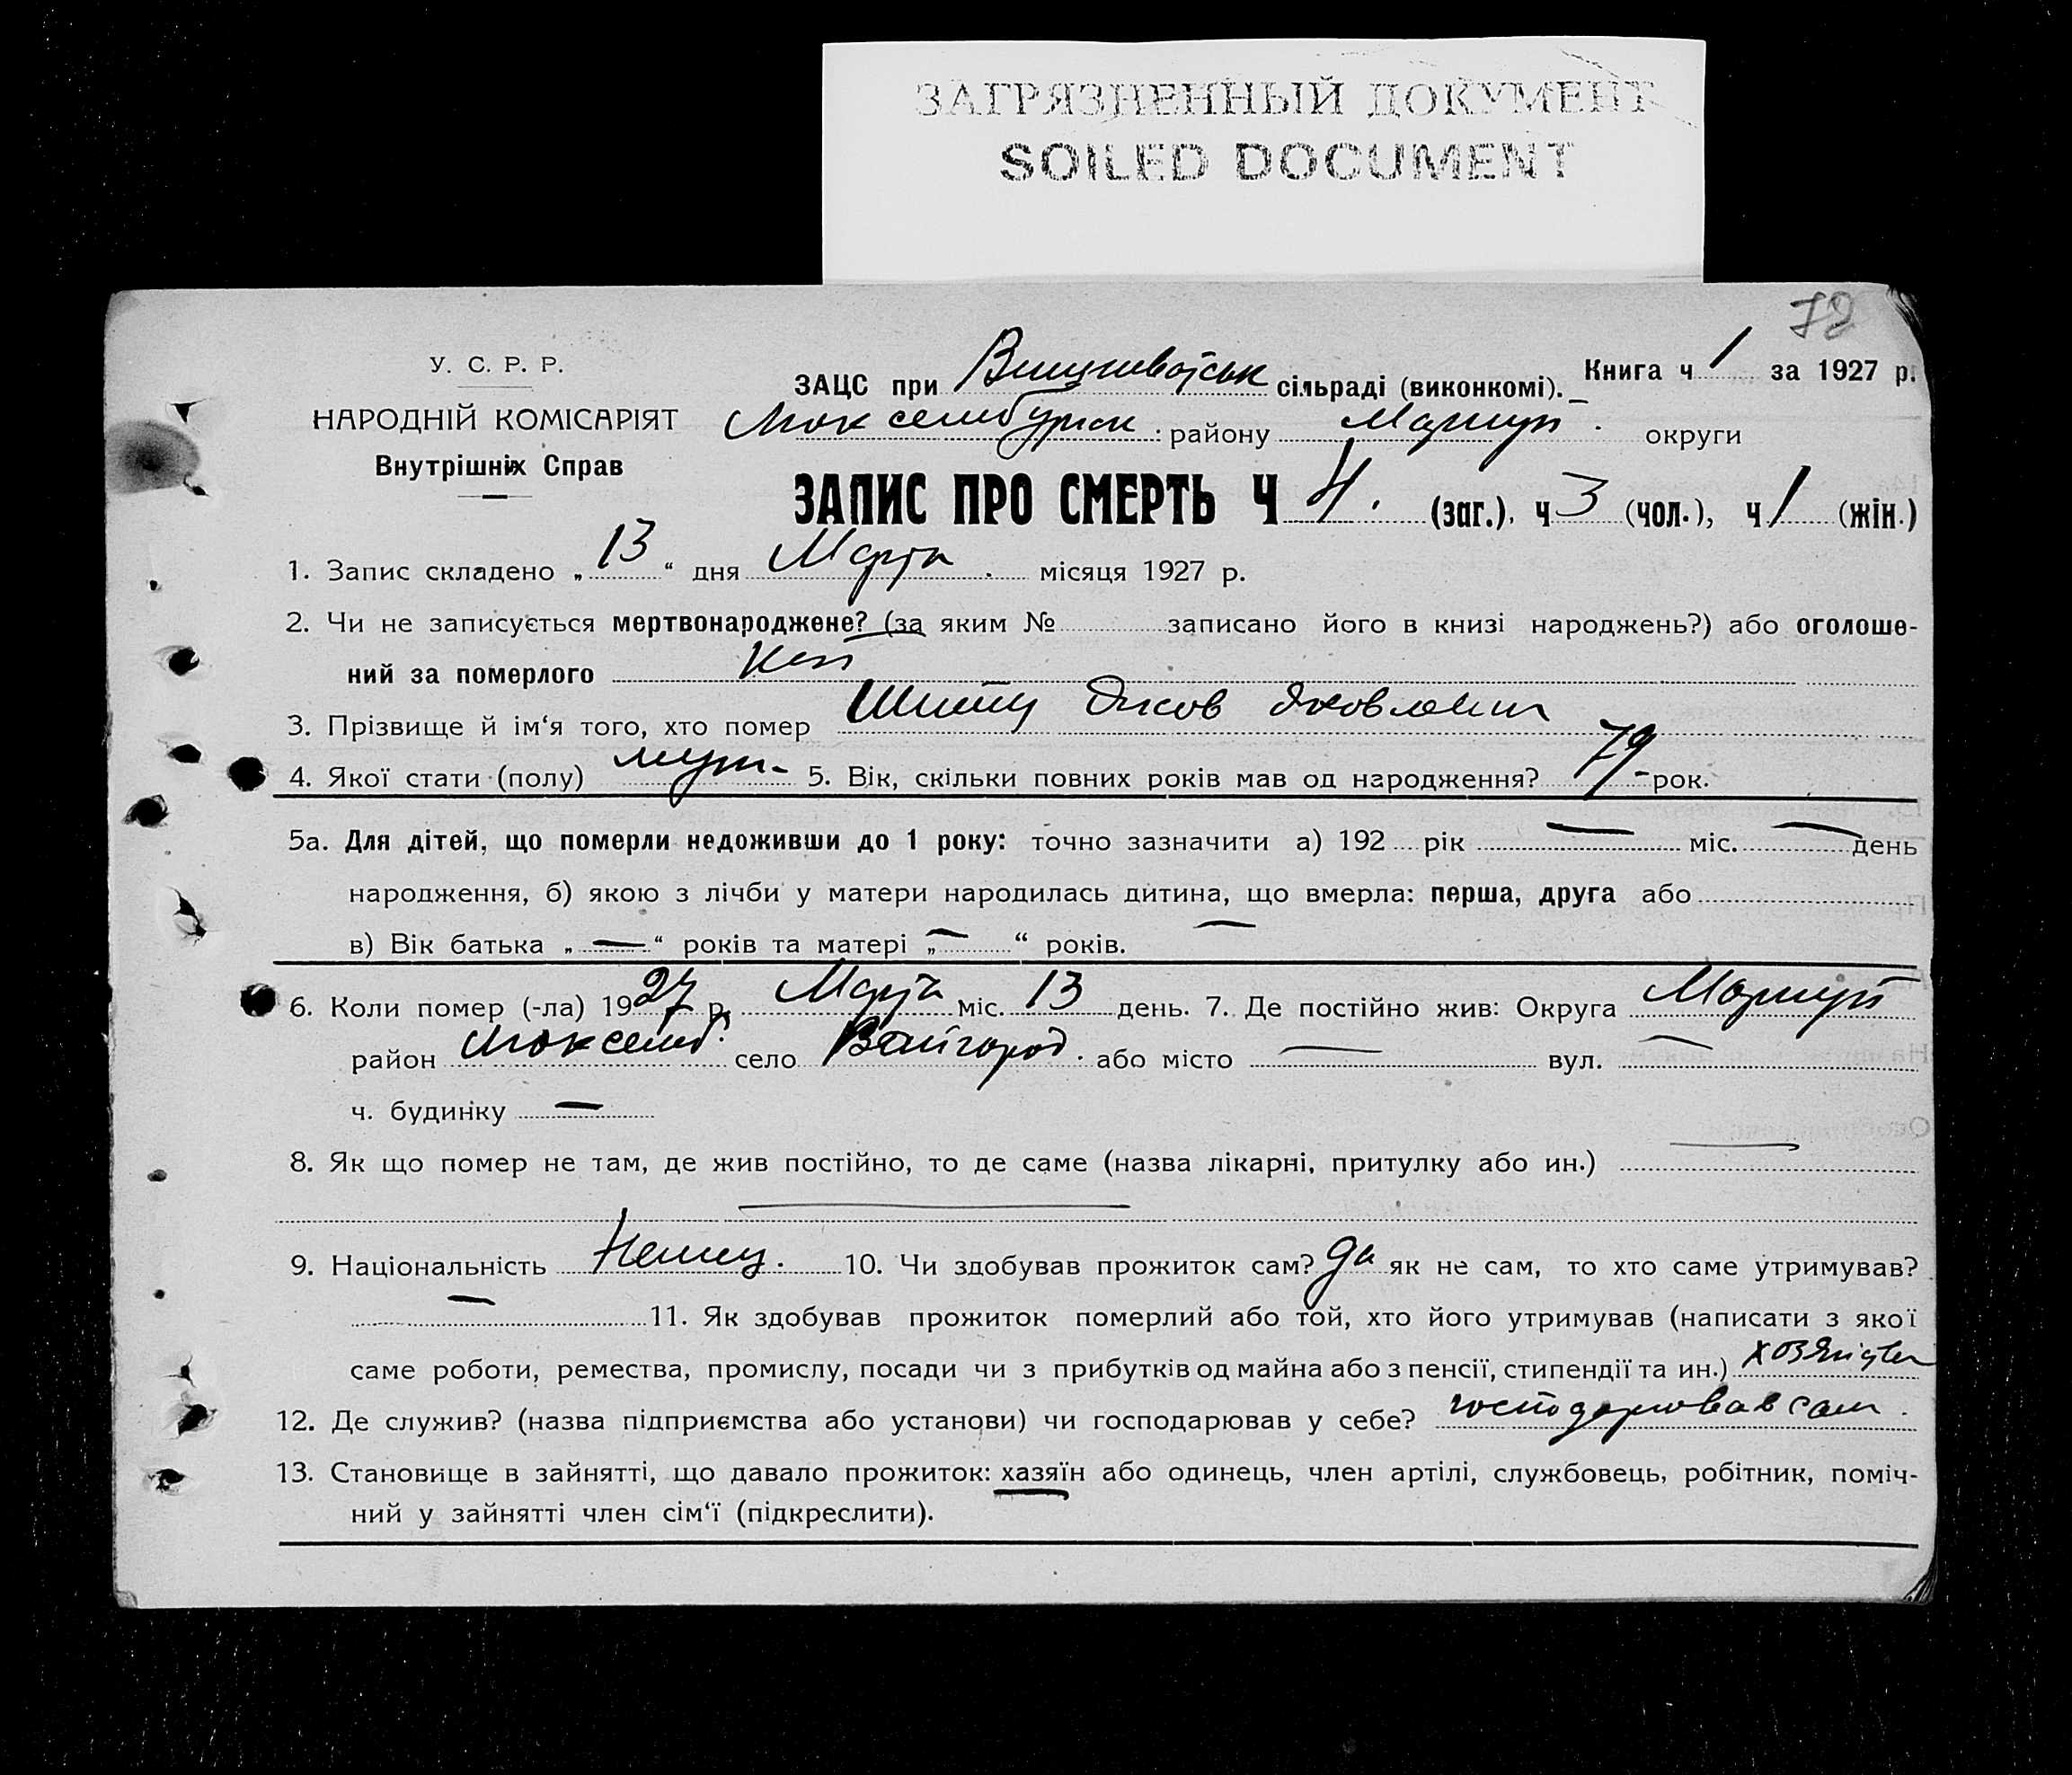 ЗАГРЯЗНЕННЫЙ ДОКУМЕНТ
SOILED DOCUMENT
72
У. С. Р. Р.
НАРОДНІЙ КОМІСАРІЯТ
Внутрішніх Справ
ЗАЦС при сільраді (виконкомі).
Книга ч 1 за 1927 р.
району Мариуп. округи
ЗАПИС ПРО СМЕРТЬ Ч 4. (заг.), ч 3 (чол.), ч 1 (жін.)
1. Запис складено „ 13 “ дня Марта місяця 1927 р.
2. Чи не записується мертвонароджене? (за яким № записано його в книзі народжень?) або оголоше-
ний за померлого Нет
3. Прізвище й ім‘я того, хто помер Яков Яковлевич
4. Якої стати (полу) муж. 5. Вік, скільки повних років мав од народження? 79 рок.
5а. Для дітей, що померли недоживши до 1 року: точно зазначити а) 192 рік — міс. — день
народження, б) якою з лічби у матери народилась дитина, що вмерла: перша, друга або
в) Вік батька „ — “ років та матері „ — “ років.
6. Коли помер (-ла) 1927 р. Марта міс. 13 день. 7. Де постійно жив: Округа Мариуп
район село Вайнгород. або місто — вул. —
ч. будинку —
8. Як що помер не там, де жив постійно, то де саме (назва лікарні, притулку або ин.) —
—
9. Національність Немец. 10. Чи здобував прожиток сам? да як не сам, то хто саме утримував?
— 11. Як здобував прожиток померлий або той, хто його утримував (написати з якої
саме роботи, ремества, промислу, посади чи з прибутків од майна або з пенсії, стипендії та ин.)
12. Де служив? (назва підприємства або установи) чи господарював у себе? господарював сам.
13. Становище в зайнятті, що давало прожиток: хазяїн або одинець, член артілі, службовець, робітник, поміч-
ний у зайнятті член сім‘ї (підкреслити).